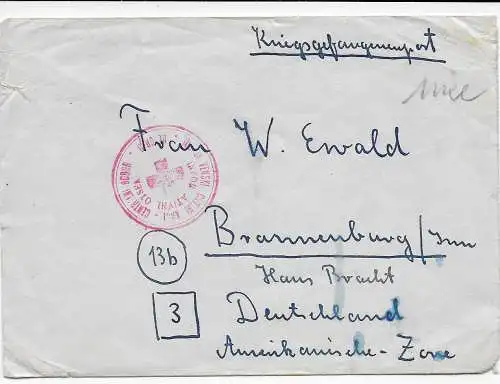 Kriegsgefangenenpost
Frau W. Ewald
13b
Brannenburg/Inn
Hans Bracht
3
Deutschland
Amerikanische-Zone